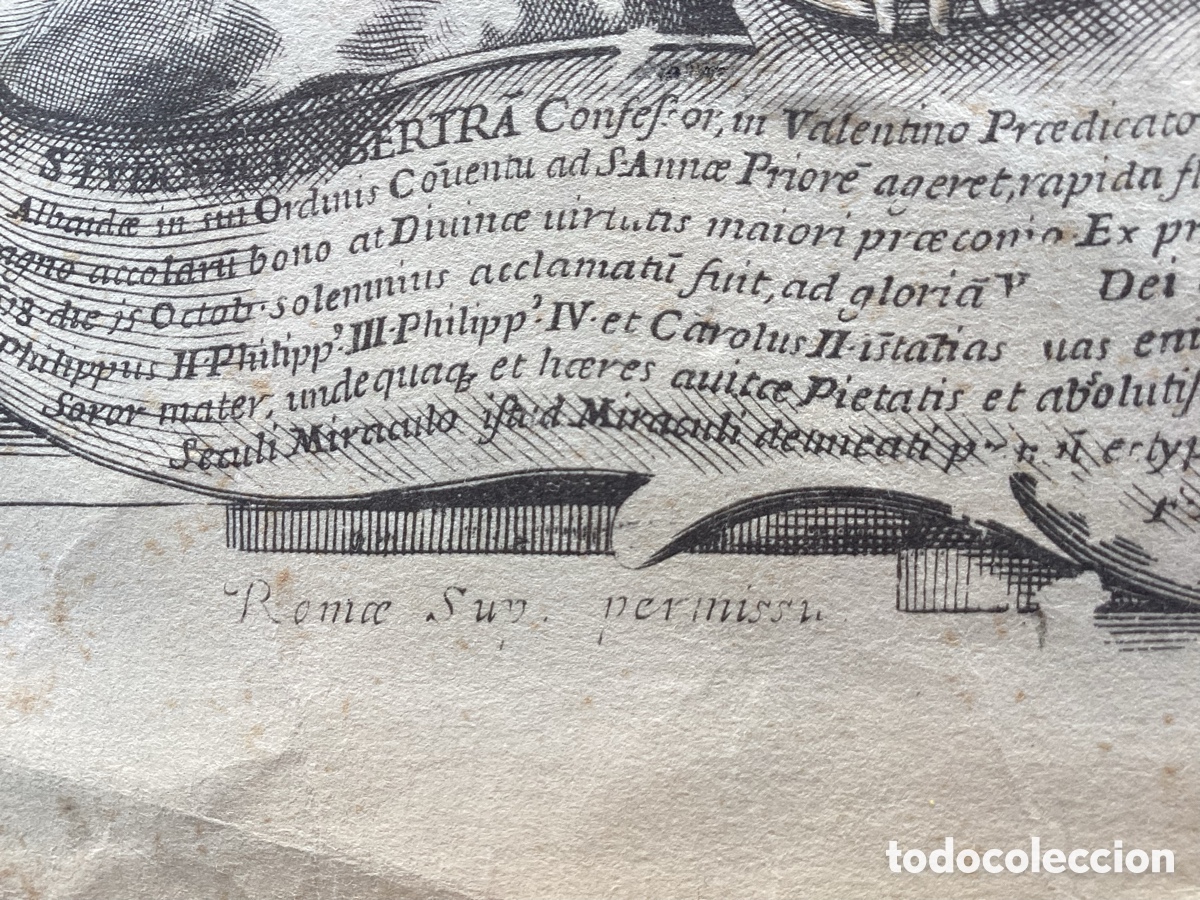 S. BERTRÃ Confeſsor, in Valentino Prædicato
Albaidæ in sui Ordinis Cōuentu ad S. Annæ Priorē ageret, rapida fl
egno accolarū bono at Diuinæ uirtutis maiori præconio. Ex pr
78 die js Octob. solemnius acclamatū fuit, ad gloriā Dei
Philippus II. Philipp⁹. III. Philipp⁹. IV. et Carolus II. uas em
Soror mater, undequaq; et hæres auitæ Pietatis et absolutiſ
Seculi Miraculo iſtud Miraculi delineati typ
Romæ Sup. permissu
todocoleccion